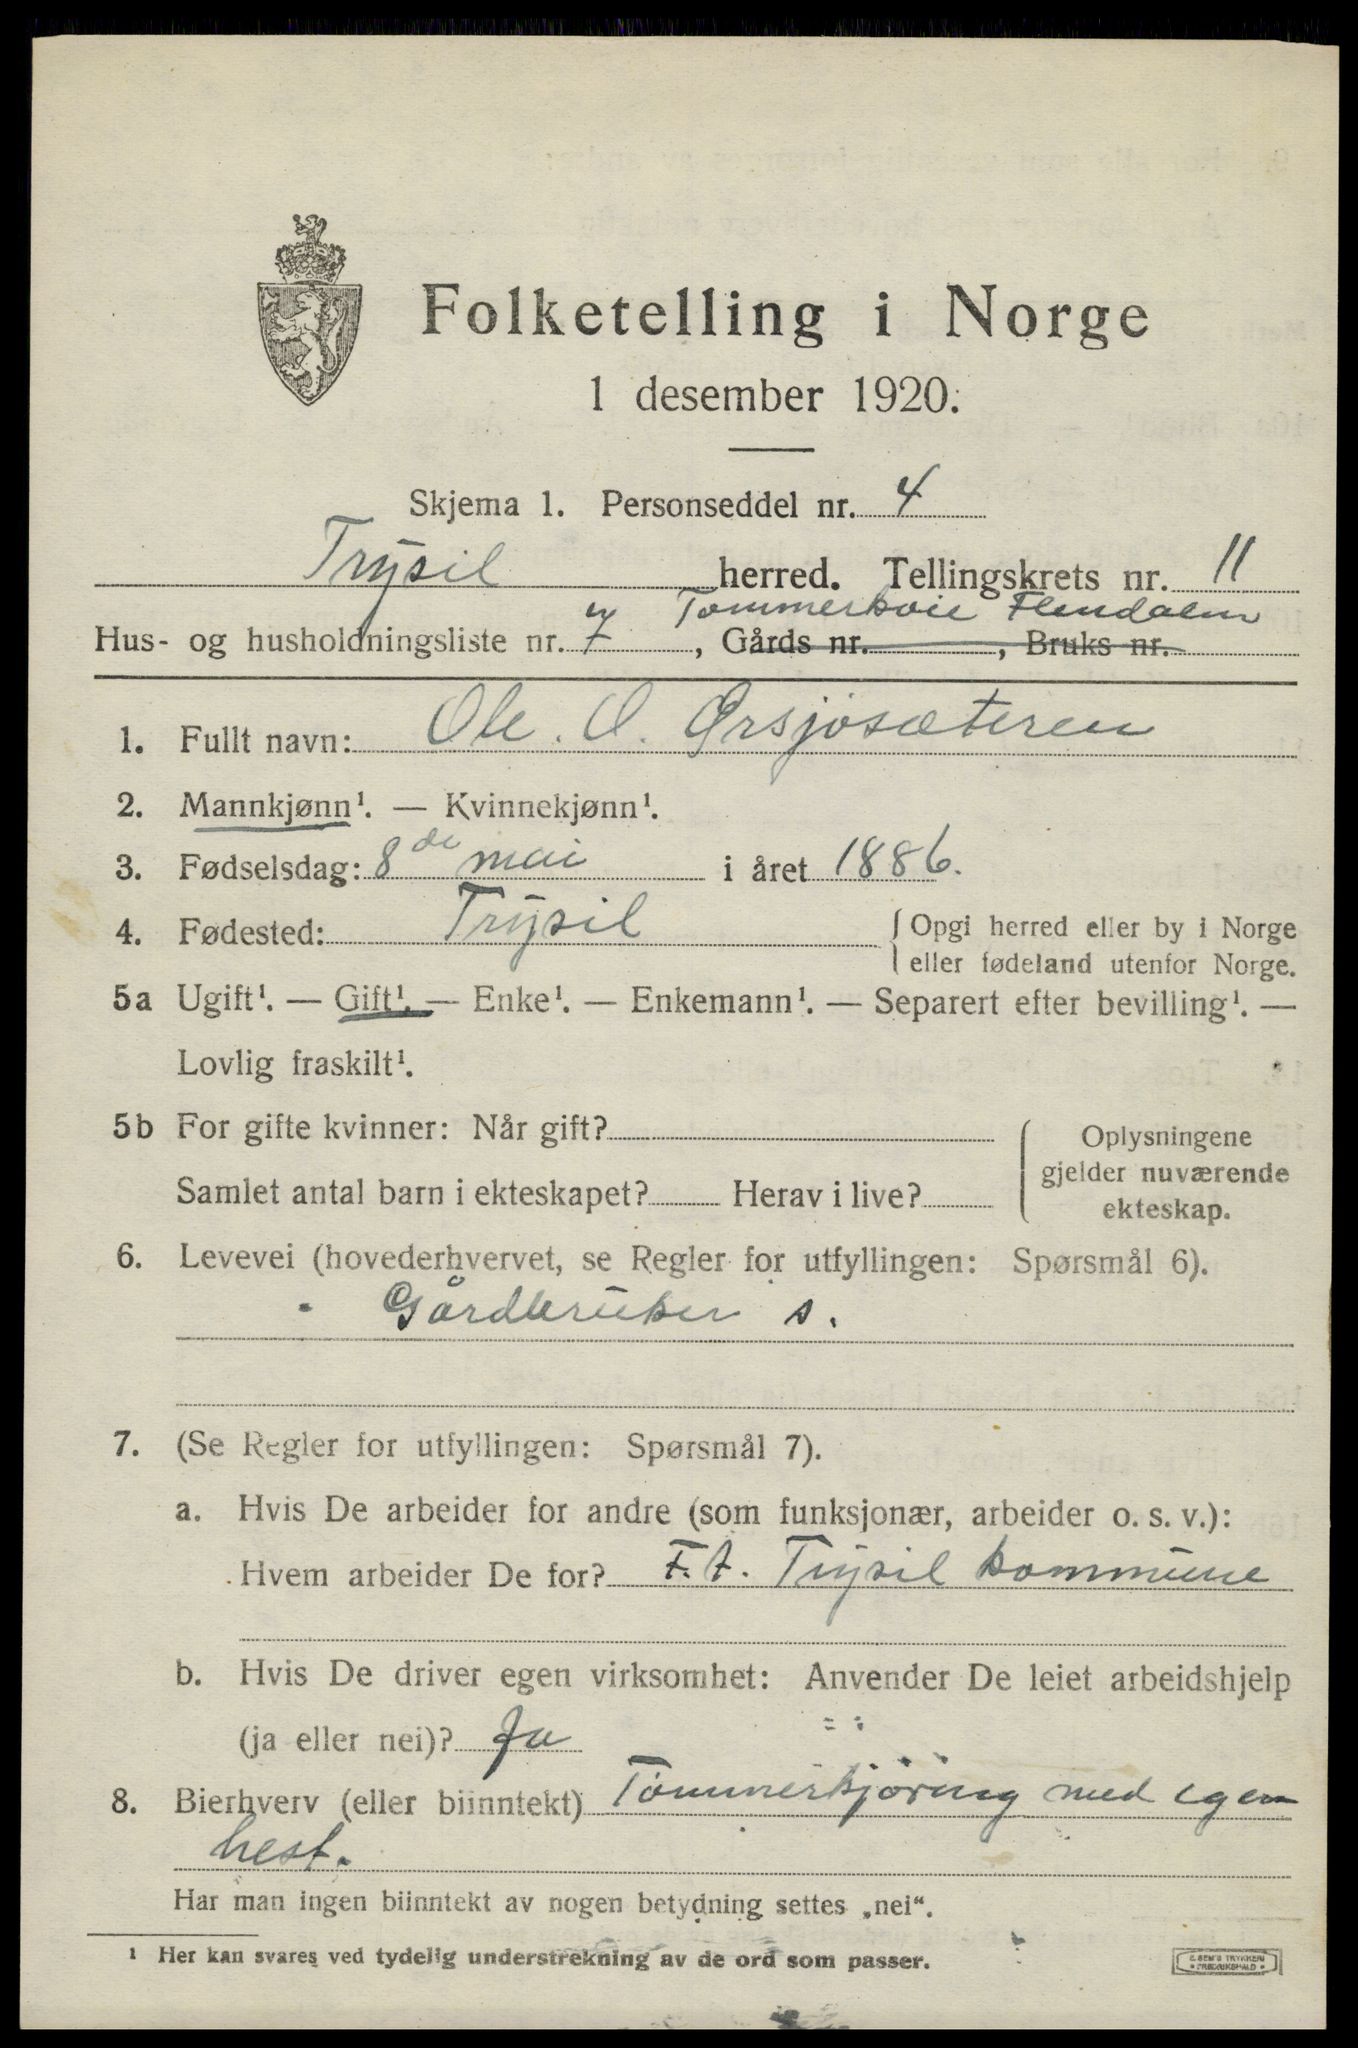 Folketelling i Norge
1 desember 1920.
Skjema 1. Personseddel nr. 4
Trysil herred. Tellingskrets nr. 11
Tømmerkoie Flendalen
Hus- og husholdningsliste nr. 7, Gårds nr. , Bruks nr.
1. Fullt navn: Ole. O. Ørsjøsæteren
2. Mannkjønn¹. — Kvinnekjønn¹.
3. Fødselsdag: 8de mai i året 1886.
4. Fødested: Trysil { Opgi herred eller by i Norge
eller fødeland utenfor Norge.
5a Ugift¹. — Gift¹. — Enke¹. — Enkemann¹. — Separert efter bevilling¹. —
Lovlig fraskilt¹.
5b For gifte kvinner: Når gift?
Samlet antal barn i ekteskapet? Herav i live?
Oplysningene
gjelder nuværende
ekteskap.
6. Levevei (hovederhvervet, se Regler for utfyllingen: Spørsmål 6).
Gårdbruker s.
7. (Se Regler for utfyllingen: Spørsmål 7).
a. Hvis De arbeider for andre (som funksjonær, arbeider o. s. v.):
Hvem arbeider De for? F.t. Trysil kommune
b. Hvis De driver egen virksomhet: Anvender De leiet arbeidshjelp
(ja eller nei)? Ja
8. Bierhverv (eller biinntekt) Tømmerkjøring med egen
hest.
Har man ingen biinntekt av nogen betydning settes „nei“.
¹ Her kan svares ved tydelig understrekning av de ord som passer.
E. SEM'S TRYKKERI
FREDRIKSHALD